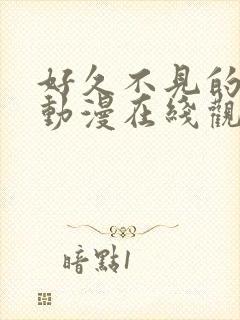 好久不見的
動漫在綫觀
暗點1